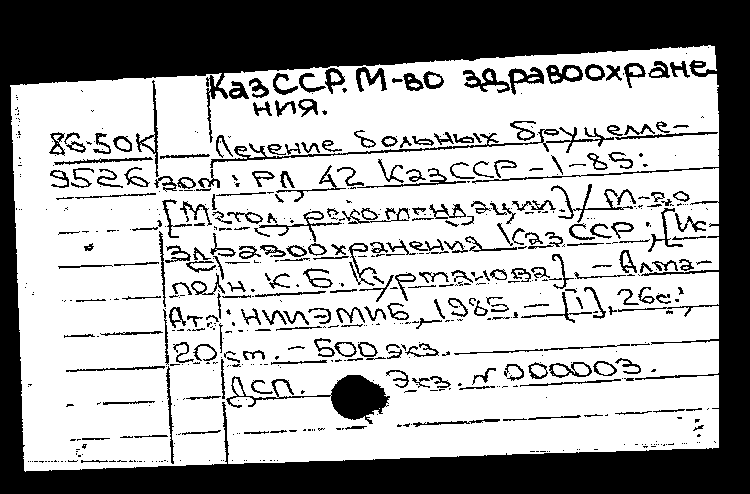 КазССР. М-во здравоохране-
ния.
86-50К Лечение больных бруцелле-
9526 зом: РД 42 КазССР-1-85:
[Метод. рекомендации] / М-во
здравоохранения КазССР; [Ис-
полн. К.Б. Курманова]. - Алма-
Ата: НИИЭМИБ, 1985. - [1], 26с.;
20 см. - 500 экз.
ДСП. Экз. №000003.